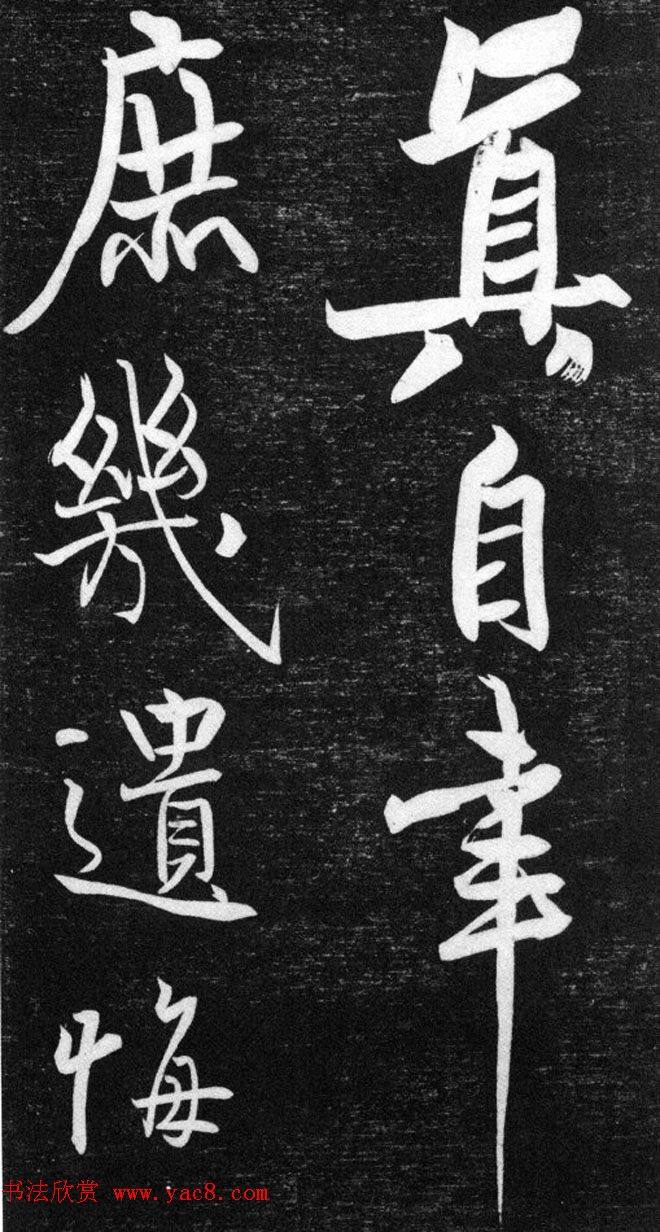 真自幸
庶幾遺悔
书法欣赏 www.yac8.com